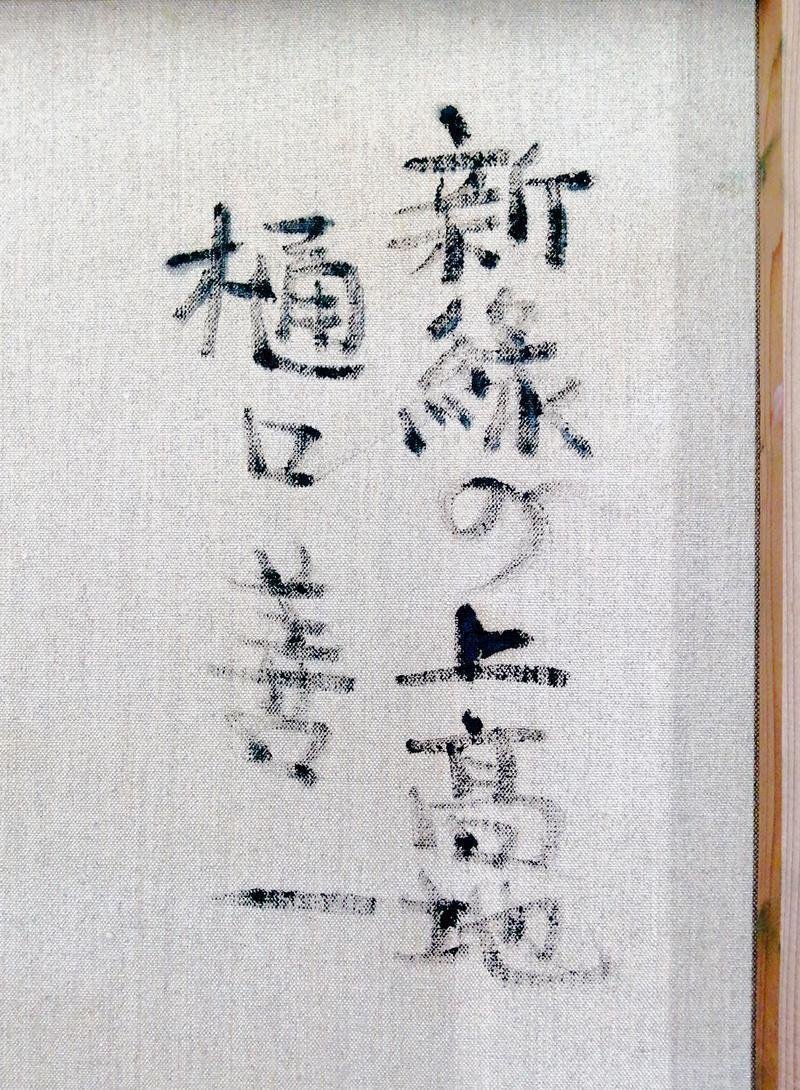 新緑の上高地
樋口善一